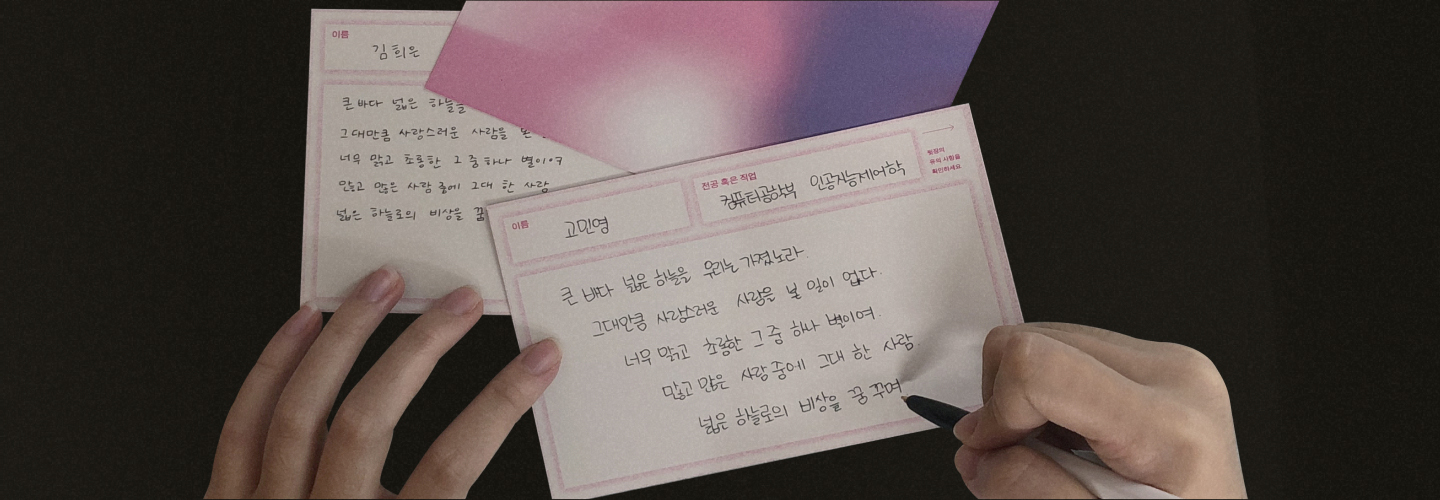 이름
김희은
큰 바다 넓은 하늘을
그대만큼 사랑스러운 사람을 본
너무 맑고 초롱한 그 중 하나 별이여
많고 많은 사람 중에 그대 한 사람
넓은 하늘로의 비상을 꿈
이름
고민영
전공 혹은 직업
컴퓨터공학부 인공지능제어학
뒷장의
유의 사항을
확인하세요
큰 바다 넓은 하늘을 우리는 가졌노라.
그대만큼 사랑스러운 사람을 본 일이 없다.
너무 맑고 초롱한 그 중 하나 별이여.
많고 많은 사람 중에 그대 한 사람.
넓은 하늘로의 비상을 꿈 꾸며